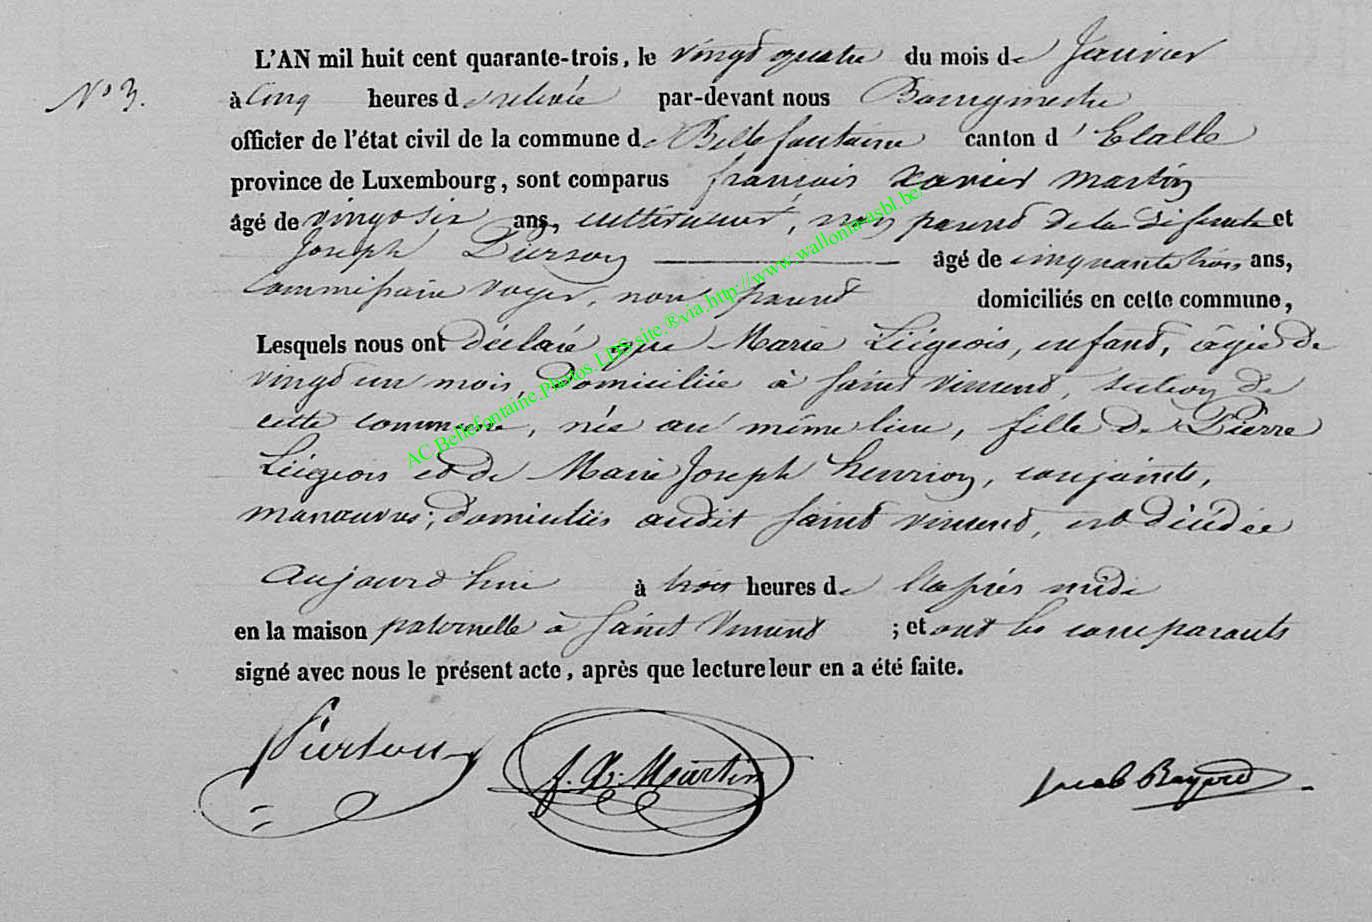 N° 3.
L'AN mil huit cent quarante-trois, le vingt quatre du mois de Janvier
à Cinq heures de relevée par-devant nous Bourgmestre
officier de l'état civil de la commune de Bellefontaine canton d'Etalle
province de Luxembourg, sont comparus françois xavier Martin
âgé de vingt six ans, cultivateur, non parent de la défunte et
Joseph Pierson âgé de cinquante trois ans,
Commissaire Voyer, non parent domiciliés en cette commune,
Lesquels nous ont déclaré que Marie Liégeois, enfant, âgée de
vingt un mois, domiciliée à Saint Vincent, section de
cette commune, née au même lieu, fille de Pierre
Liégeois et de Marie Joseph henrion, conjoints,
manœuvres, domiciliés audit Saint Vincent, est décédée
Aujourd'hui à trois heures de l'après midi
en la maison paternelle à Saint Vincent ; et ont les comparants
signé avec nous le présent acte, après que lecture leur en a été faite.
f. X. Martin
Jacob Bayard
AC.Bellefontaine.Photos.LDS.site.®via.http://www.wallonia-asbl.be/